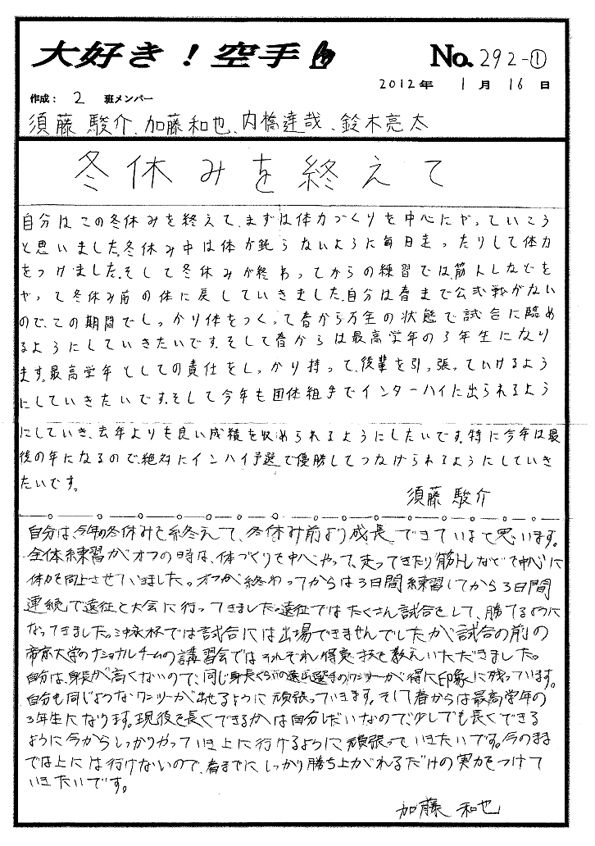 大好き！空手
No.292-①
2012年 1月 16日
作成： 2 班メンバー
須藤 駿介、加藤和也、内橋達哉、鈴木亮太
冬休みを終えて
自分はこの冬休みを終えて、まずは体力づくりを中心にやっていこう
と思いました。冬休み中は体が鈍らないように毎日走ったりして体力
をつけました。そして冬休みが終わってからの練習では、筋トレなどを
やって冬休み前の体に戻していきました。自分は春まで公式戦がない
ので、この期間でしっかり体をつくって春から万全の状態で試合に臨め
るようにしていきたいです。そして春からは最高学年の3年生になり
ます。最高学年としての責任をしっかり持って、後輩を引っ張っていけるよう
にしていきたいです。そして今年も団体組手でインターハイに出られるよう
にしていき、去年よりも良い成績を収められるようにしたいです。特に今年は最
後の年になるので、絶対にインハイ予選で優勝してつなげられるようにしていき
たいです。
須藤 駿介
自分は、今年の冬休みを終えて、冬休み前より成長できていまと思います。
全体練習がオフの時は、体づくりを中心やって、走ってきたり筋トレなどで中心に
体力を向上させていました。オフが終わってからは3日間練習してから3日間
連続で遠征と大会に行ってきました。遠征ではたくさん試合をして、勝てるように
なってきました。杯では試合には出場できませんでしたが試合の前の
帝京大学のナショナルチームの講習会ではそれぞれ得意技を教えいただきました。
自分は、身長が高くないので、同じ身長ぐらいの選手のワンツーが得に印象に残っています。
自分も同じようなワンツーが出せるように頑張っていきます。そして春からは最高学年の
3年生になります。現役を長くできるかは自分しだいなので少しでも長くできる
ように今からしっかりやっていき上に行けるように頑張っていきたいです。今のまま
では上には行けないので、春までにしっかり勝ち上がれるだけの実力をつけて
いきたいです。
加藤 和也